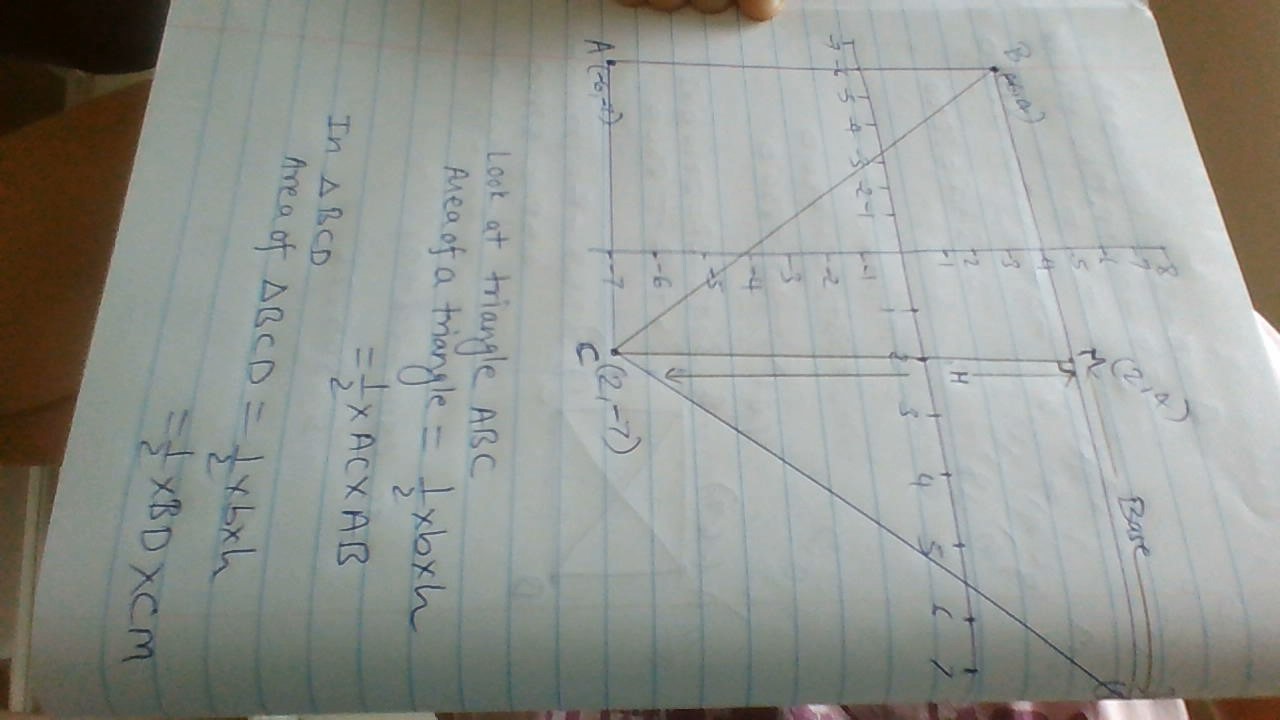 8
7
-6
-5
M (2,4)
Base
B
-4
-3
-2
-1
H
-6 -5 -4 -3 -2 -1 1 2 3 4 5 6 7
-1
-2
-3
-4
-5
-6
-7
A
C (2,-7)
Look at triangle ABC
Area of a triangle = 1/2 x b x h
= 1/2 x AC x AB
In △BCD
Area of △BCD = 1/2 x b x h
= 1/2 x BD x CM